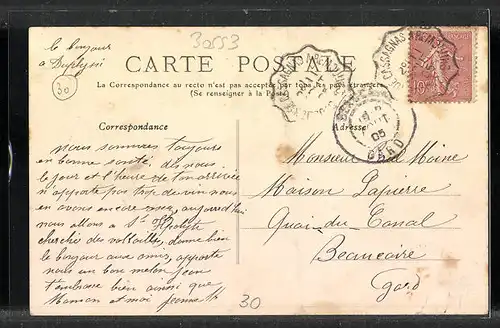 30553
le bonjour
à Duplyni
30
CARTE POSTALE
La Correspondance au recto n'est pas acceptée par tous les pays étrangers
(Se renseigner à la Poste)
Correspondance
Adresse
nous sommes toujours
en bonne santé, dis nous
le jour et l'heure de ton arrivée
n'apporte pas trop de vin nous
en avons encore assez, aujourd'hui
nous allons a St Hipolyte
cherché de volailles, donne bien
le bonjour aux amis, apporte
nous un bon melon, Jean
t'embrasse bien ainsi que
Maman et moi Jeanne M
Monsieur de Moine
Maison Lapierre
Quai du Canal
Beaucaire
Gard
10
05
GARD
30